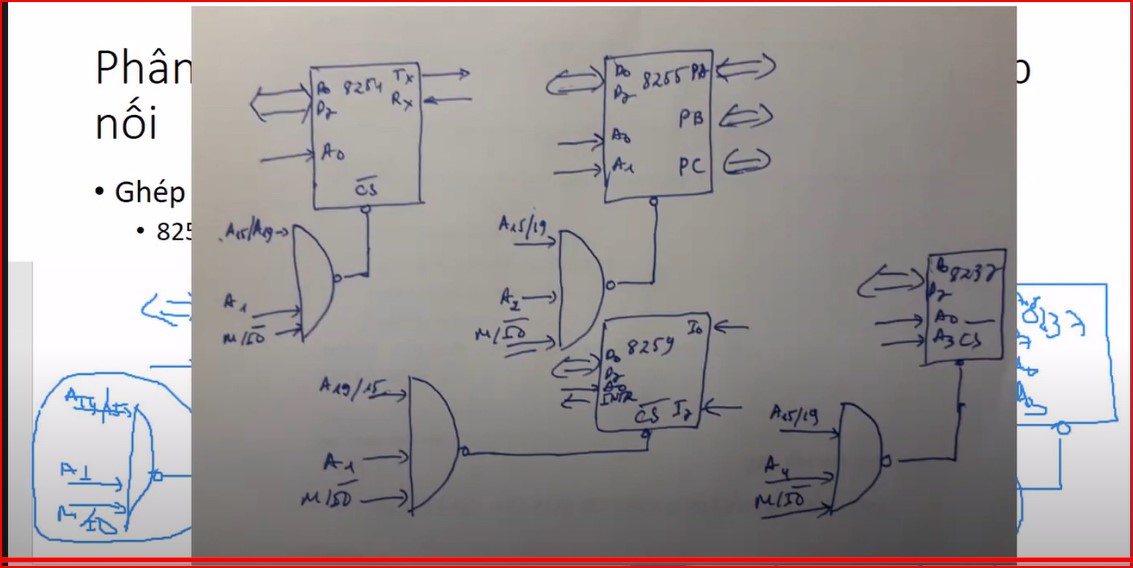 Phân
nối
• Ghép
• 825
D0 8251 Tx
D7 Rx
A0
CS
A15/A19
A1
M/IO
D0 8255 PA
D7
PB
A0
A1 PC
A15/19
A2
M/IO
D0 8259 I0
D7
A0
INTR CS I7
A19/15
A1
M/IO
D0 8237
D7
A0
A3 CS
A15/19
A4
M/IO
A1
M/IO
8237